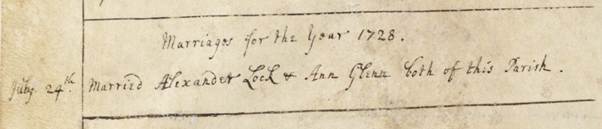 Marriages for the Year 1728.
July 24th. Married Alexander Lock & Ann Glenn both of this Parish.